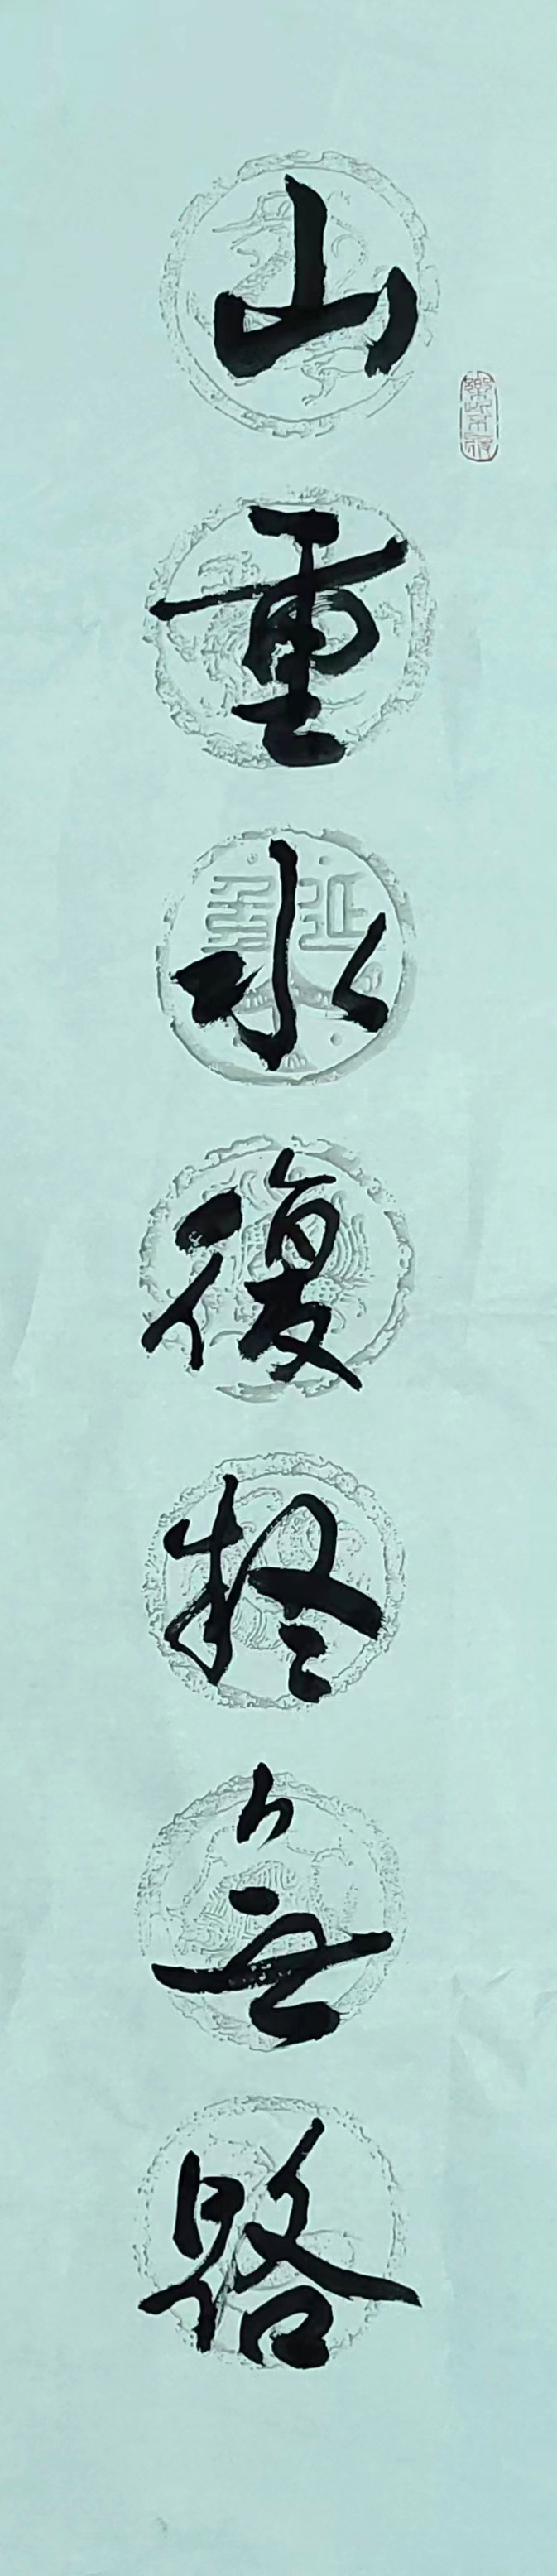 山重水復疑無路